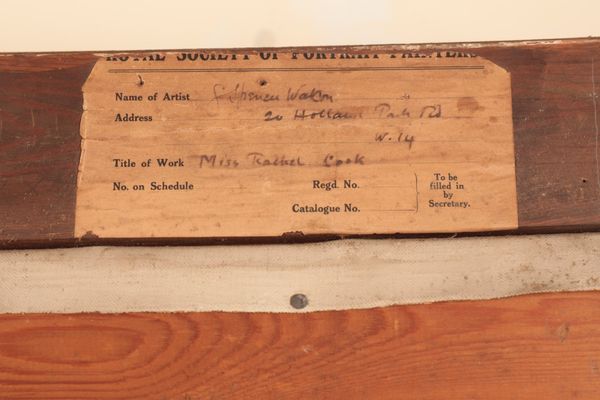 ROYAL SOCIETY OF PORTRAIT PAINTERS
Name of Artist G Spencer Watson
Address 20 Holland Park Rd
W. 14
Title of Work Miss Rachel Cook
No. on Schedule Regd. No.
Catalogue No.
To be
filled in
by
Secretary.